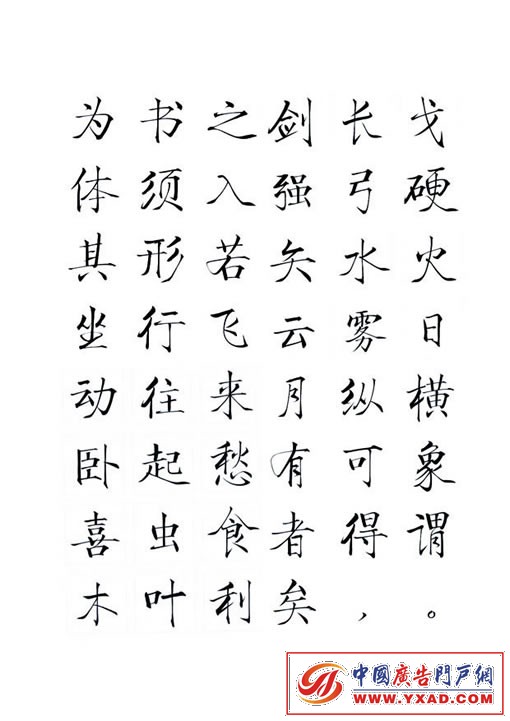 为书之剑长戈
体须入强弓硬
其形若矢水火
坐行飞云雾日
动往来月纵横
卧起愁有可象
喜虫食者得谓
木叶利矣，。
中國廣告門戶網
WWW.YXAD.COM